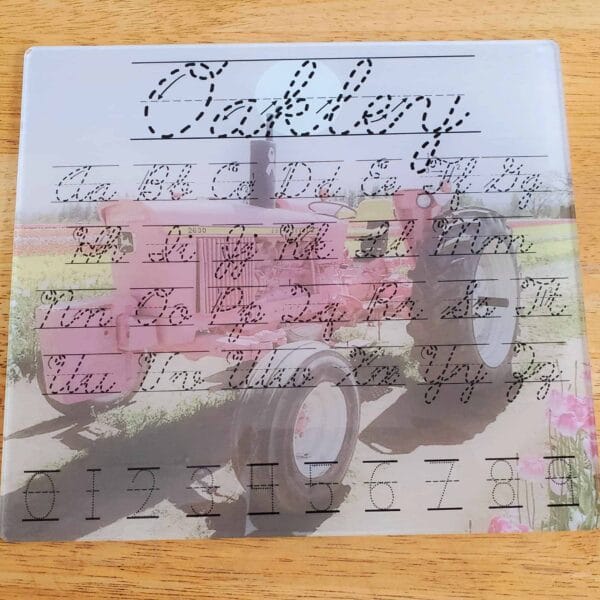 Oakley
Aa Bb Cc Dd Ee Ff Gg
Hh Ii Jj Kk Ll Mm
Nn Oo Pp Qq Rr Ss Tt
Uu Vv Ww Xx Yy Zz
2630
0 1 2 3 4 5 6 7 8 9